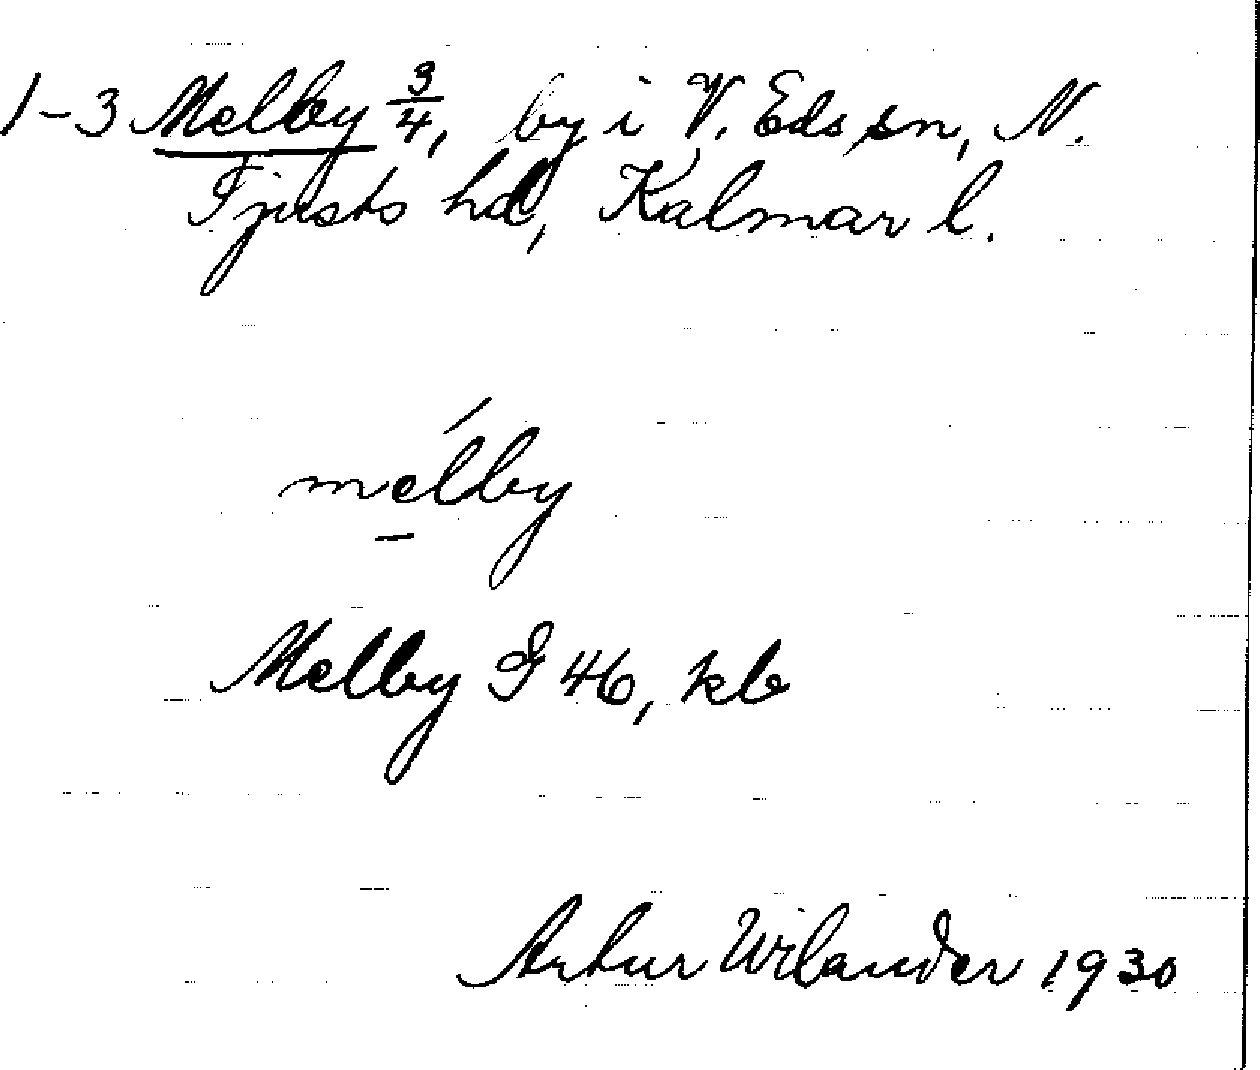 1-3 Melby 3/4, by i V. Eds sn, N.
Tjusts hd, Kalmar l.
melby
Melby G 46, kb
Artur Wilander 1930